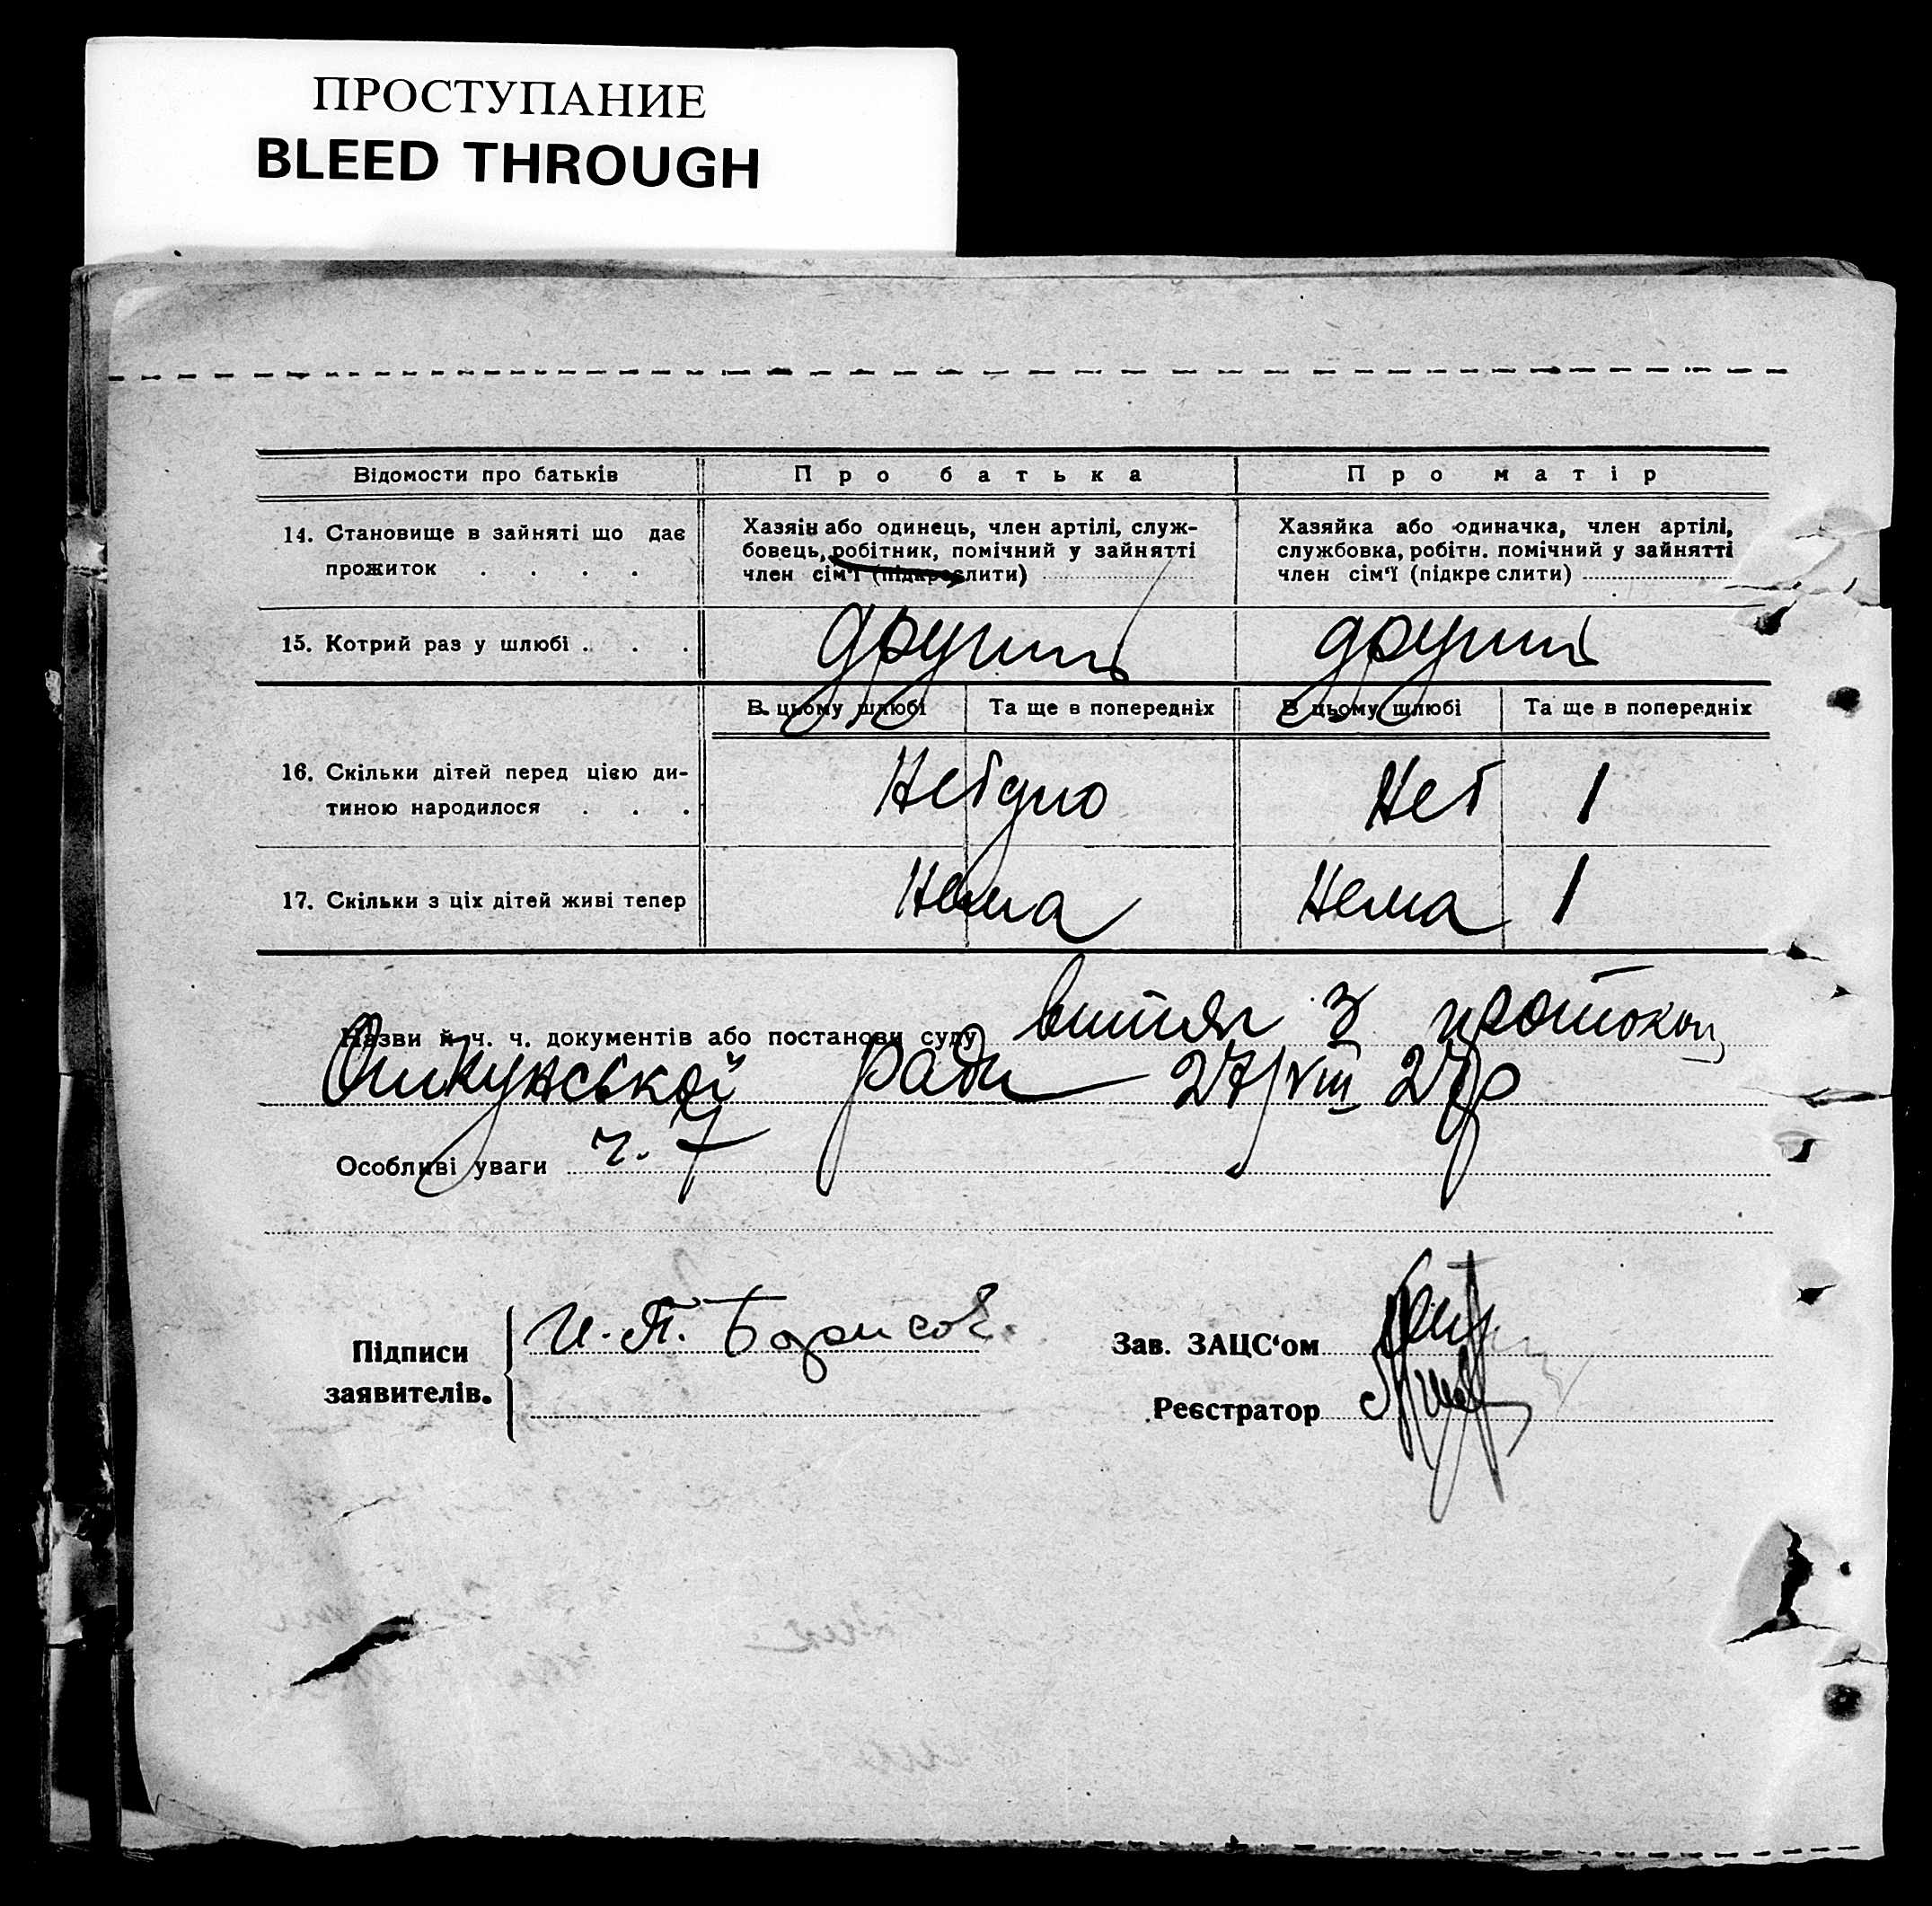 ПРОСТУПАНИЕ
BLEED THROUGH
Відомости про батьків Про батька Про матір
14. Становище в зайняті що дає прожиток . . . .
Хазяїн або одинець, член артілі, служ-
бовець, робітник, помічний у зайнятті
член сім'ї (підкреслити)
Хазяйка або одиначка, член артілі,
службовка, робітн. помічний у зайнятті
член сім'ї (підкреслити)
15. Котрий раз у шлюбі . . . другий другий
В цьому шлюбі Та ще в попередніх В цьому шлюбі Та ще в попередніх
16. Скільки дітей перед цією ди-
тиною народилося . . . Нет Нет 1
17. Скільки з ціх дітей живі тепер Нема Нема 1
Назви й ч. ч. документів або постанови суду витяг з протокол
Опікунської ради 27/VIII 27р
Особливі уваги ч. 7
Підписи
заявителів.
И. П. Борисов
Зав. ЗАЦС'ом
Реєстратор